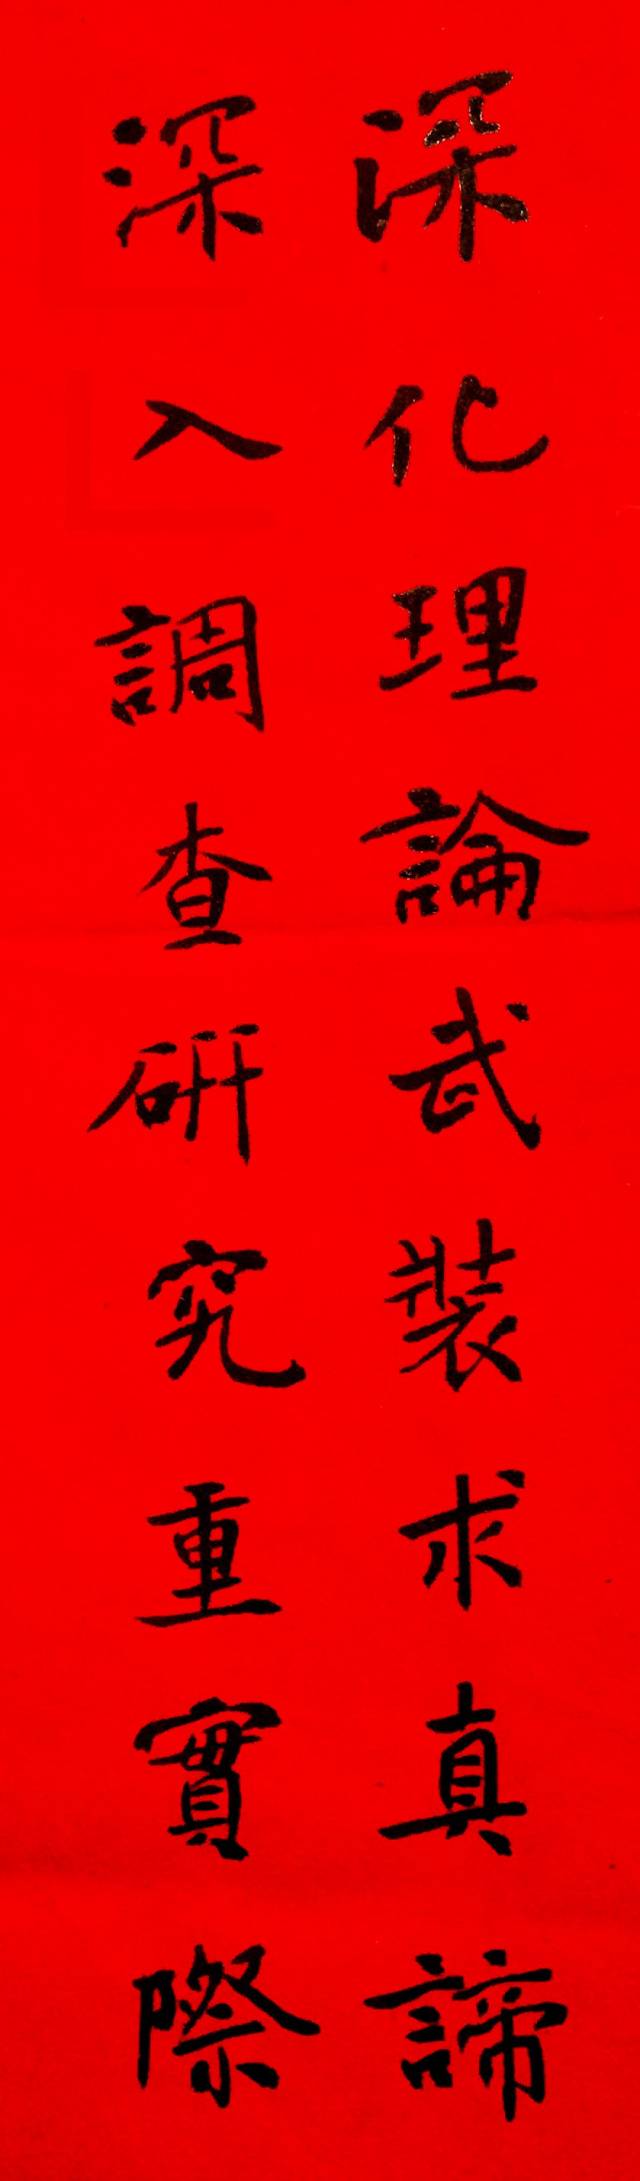 深化理論武裝求真諦
深入調查研究重實際